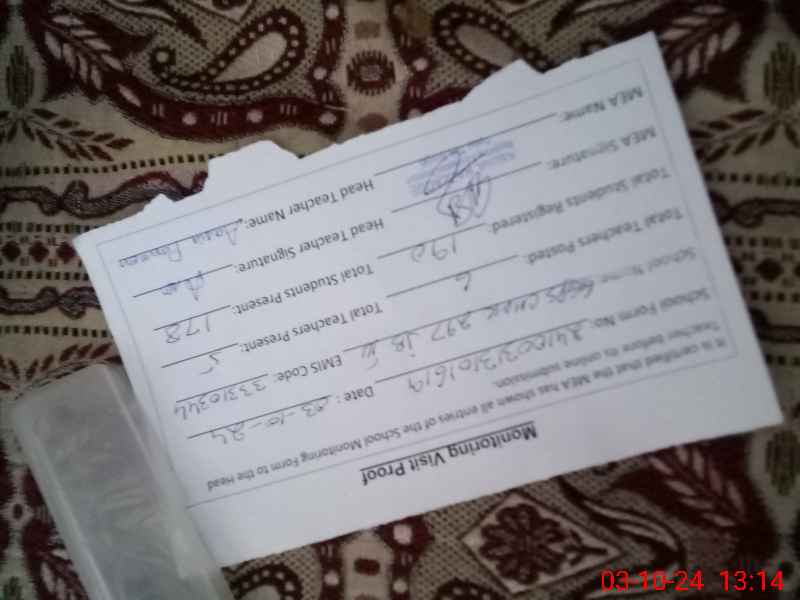 Monitoring Visit Proof
It is certified that the MEA has shown all entries of the School Monitoring Form to the Head
Teacher before its online submission.
School Form No: Date: 03-10-24
School Name: GGPS CHAK 297 JB EMIS Code: 33310344
Total Teachers Posted: 6 Total Teachers Present: 5
Total Students Registered: 190 Total Students Present: 178
MEA Signature: Head Teacher Signature:
MEA Name: Head Teacher Name:
03-10-24 13:14